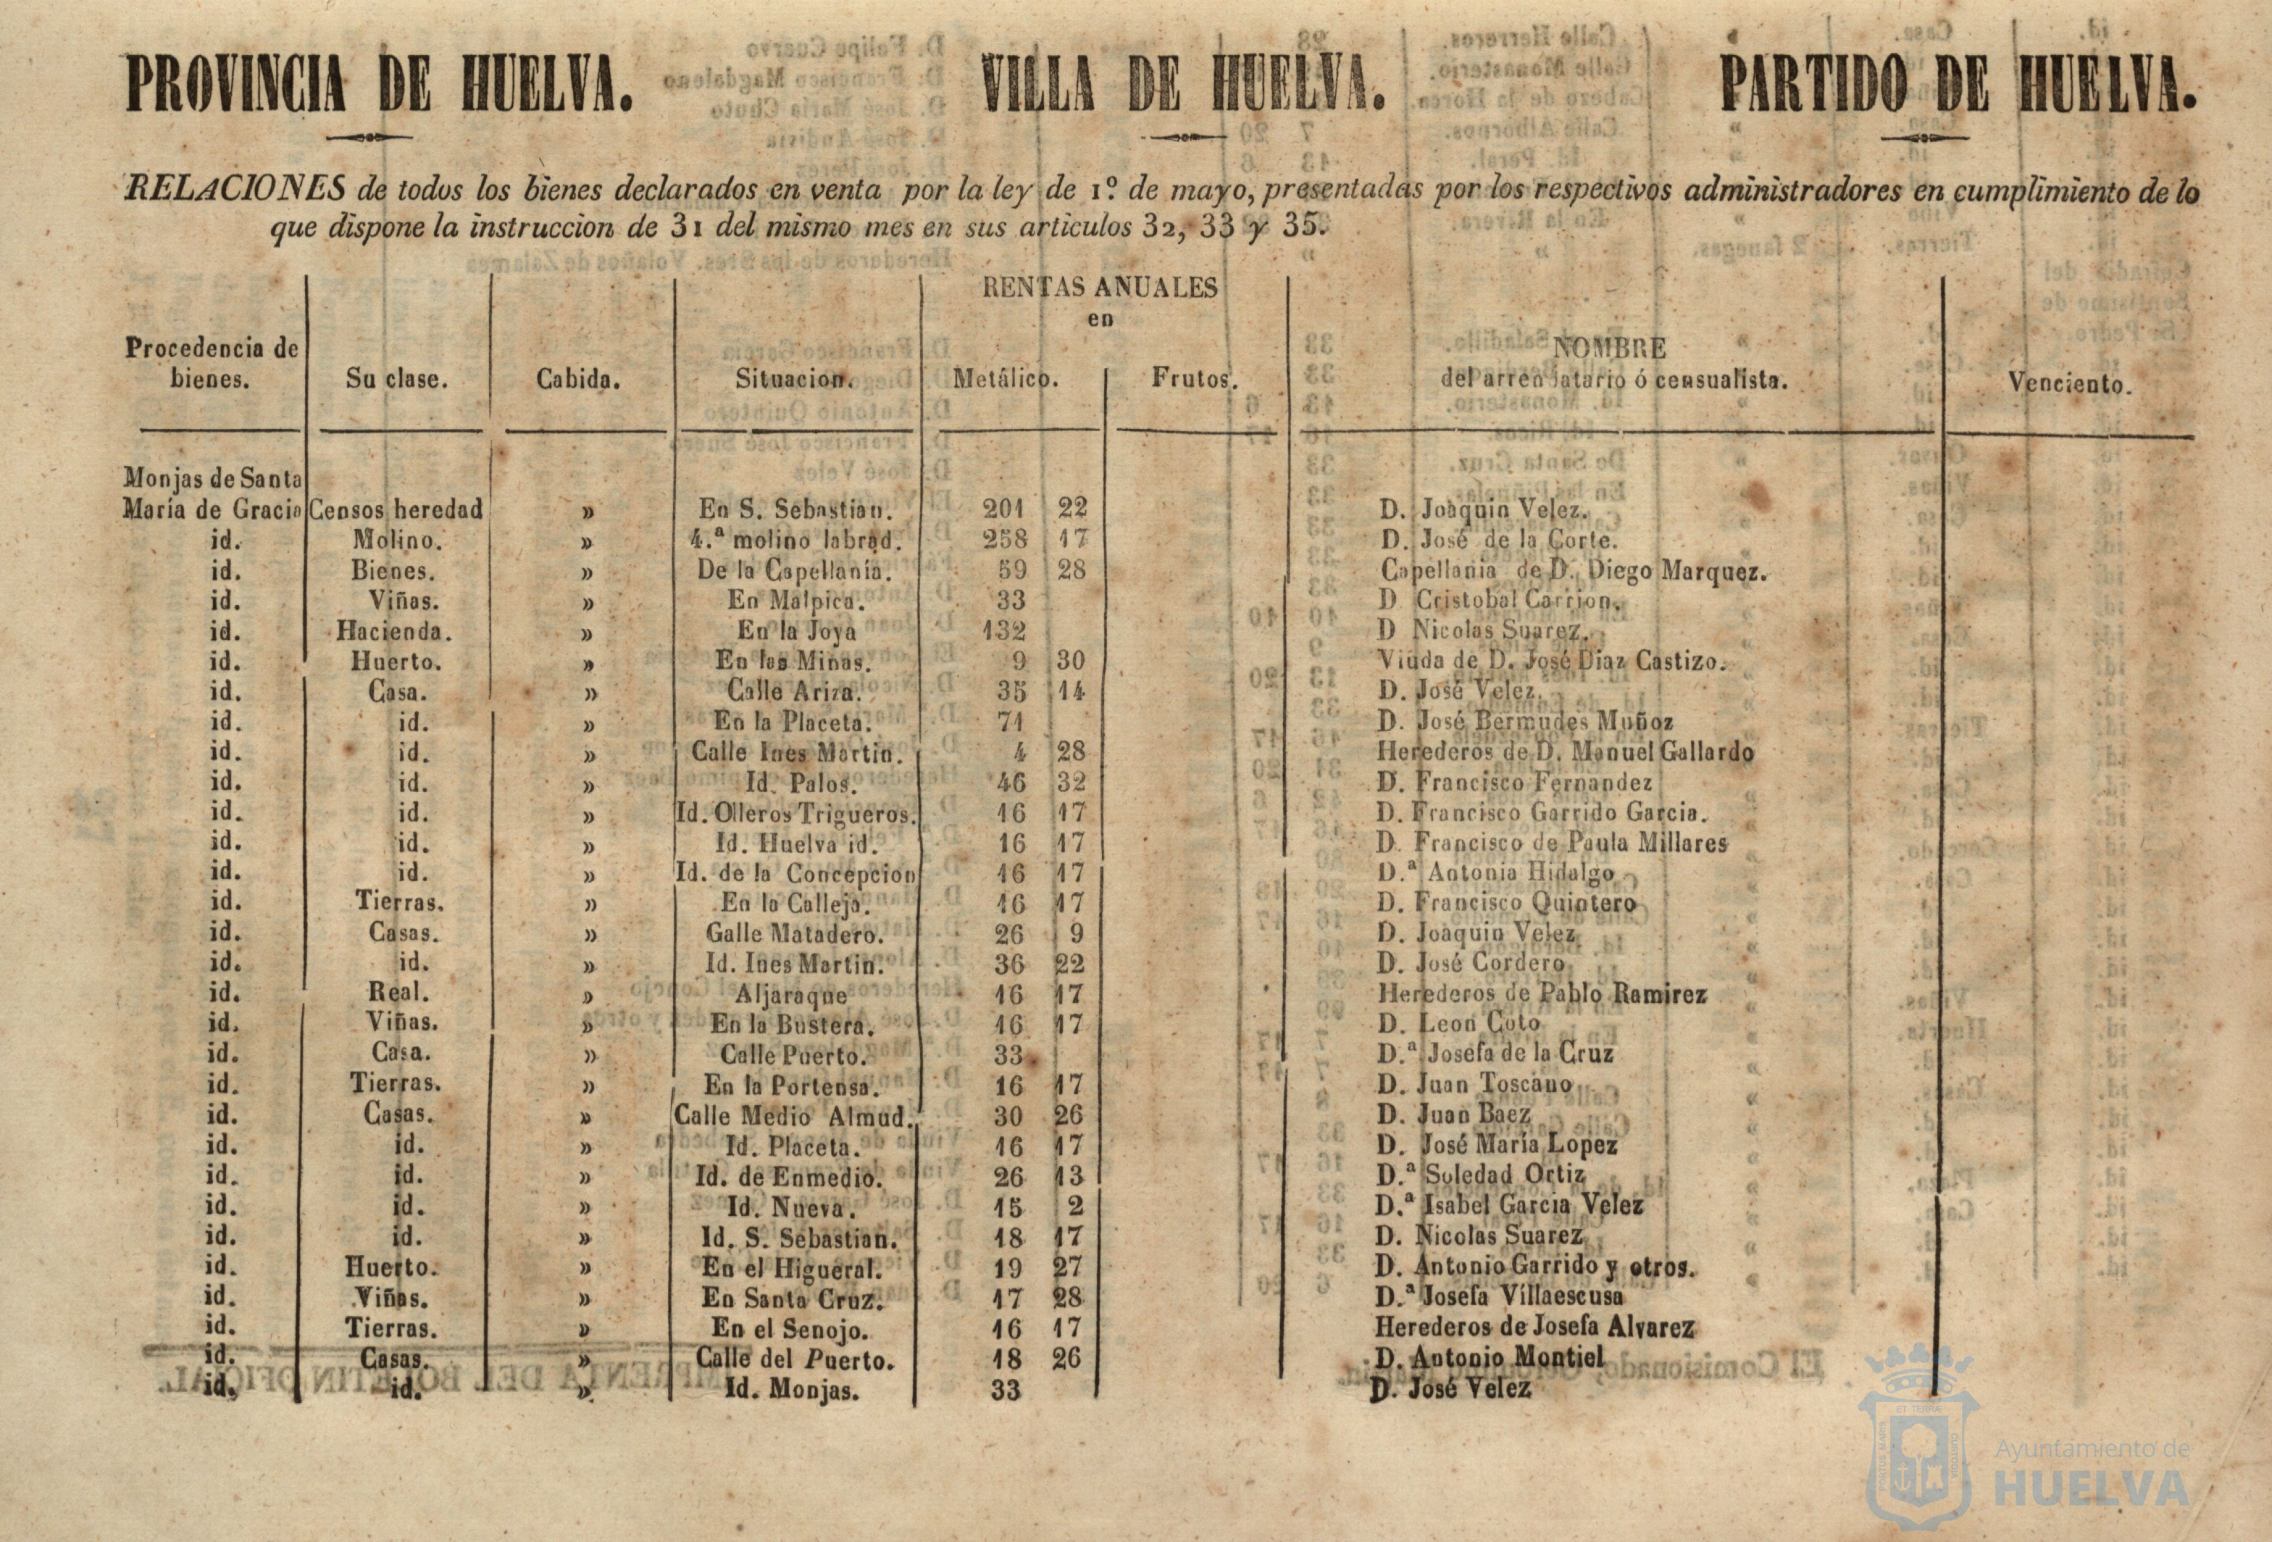 PROVINCIA DE HUELVA. VILLA DE HUELVA. PARTIDO DE HUELVA.
RELACIONES de todos los bienes declarados en venta por la ley de 1.º de mayo, presentadas por los respectivos administradores en cumplimiento de lo
que dispone la instruccion de 31 del mismo mes en sus articulos 32, 33 y 35.
RENTAS ANUALES
en
Procedencia de bienes. Su clase. Cabida. Situacion. Metálico. Frutos. NOMBRE del arrendatario ó censualista. Venciento.
Monjas de Santa
María de Gracia Censos heredad » En S. Sebastian. 201 22 D. Joaquin Velez.
id. Molino. » 4.ª molino labrad. 258 17 D. José de la Corte.
id. Bienes. » De la Capellanía. 59 28 Capellania de D. Diego Marquez.
id. Viñas. » En Malpica. 33 D Cristobal Carrion.
id. Hacienda. » En la Joya 132 D Nicolas Suarez.
id. Huerto. » En las Minas. 9 30 Viuda de D. José Diaz Castizo.
id. Casa. » Calle Ariza. 35 14 D. José Velez.
id. id. » En la Placeta. 71 D. José Bermudes Muñoz
id. id. » Calle Ines Martin. 4 28 Herederos de D. Manuel Gallardo
id. id. » Id. Palos. 46 32 D. Francisco Fernandez
id. id. » Id. Olleros Trigueros. 16 17 D. Francisco Garrido Garcia.
id. id. » Id. Huelva id. 16 17 D. Francisco de Paula Millares
id. id. » Id. de la Concepcion 16 17 D.ª Antonia Hidalgo
id. Tierras. » En la Calleja. 16 17 D. Francisco Quintero
id. Casas. » Galle Matadero. 26 9 D. Joaquin Velez
id. id. » Id. Ines Martin. 36 22 D. José Cordero
id. Real. » Aljaraque 16 17 Herederos de Pablo Ramirez
id. Viñas. » En la Bustera. 16 17 D. Leon Coto
id. Casa. » Calle Puerto. 33 D.ª Josefa de la Cruz
id. Tierras. » En la Portensa. 16 17 D. Juan Toscano
id. Casas. » Calle Medio Almud. 30 26 D. Juan Baez
id. id. » Id. Placeta. 16 17 D. José María Lopez
id. id. » Id. de Enmedio. 26 13 D.ª Soledad Ortiz
id. id. » Id. Nueva. 15 2 D.ª Isabel Garcia Velez
id. id. » Id. S. Sebastian. 18 17 D. Nicolas Suarez
id. Huerto. » En el Higueral. 19 27 D. Antonio Garrido y otros.
id. Viñas. » En Santa Cruz. 17 28 D.ª Josefa Villaescusa
id. Tierras. » En el Senojo. 16 17 Herederos de Josefa Alvarez
id. Casas. » Calle del Puerto. 18 26 D. Antonio Montiel
id. id. » Id. Monjas. 33 D. José Velez
Ayuntamiento de
HUELVA